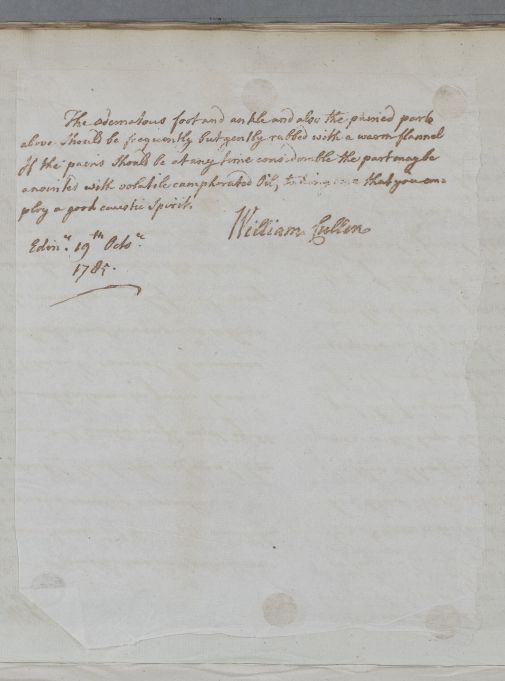 The œdematous foot and ankle and also the pained part
above should be frequently but gently rubbed with a warm flannel
If the pains should be at any time considerable the part may be
anointed with volatile camphorated Oil, that you em=
ploy a good caustic Spirit.
William Cullen
Edinr. 19th Octor.
1785.